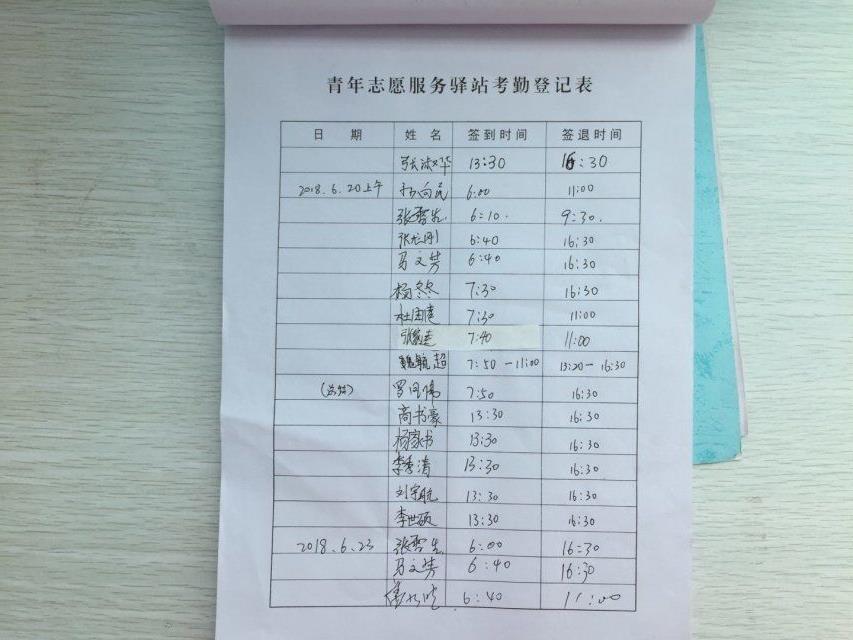 青年志愿服务驿站考勤登记表
日 期 姓 名 签到时间 签退时间
张淑华 13:30 16:30
2018.6.20上午 向民 6:00 11:00
张哲生 6:10. 9:30.
张 刚 6:40 16:30
马文芳 6:40 16:30
杨冬冬 7:30 16:30
杜国 7:30 11:00
张 7:40 11:00
魏航超 7:50-11:00 13:20-16:30
罗 伟 7:50 16:30
高书豪 13:30 16:30
杨家书 13:30 16:30
李秀清 13:30 16:30
刘宇航 13:30 16:30
李世硕 13:30 16:30
2018.6.23 张哲生 6:00 16:30
马文芳 6:40 16:30
6:40 11:00